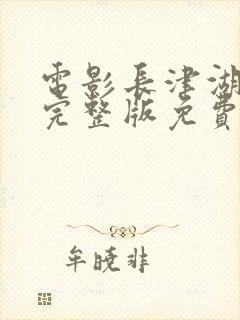 電影長津湖
完整版免費
牟曉非